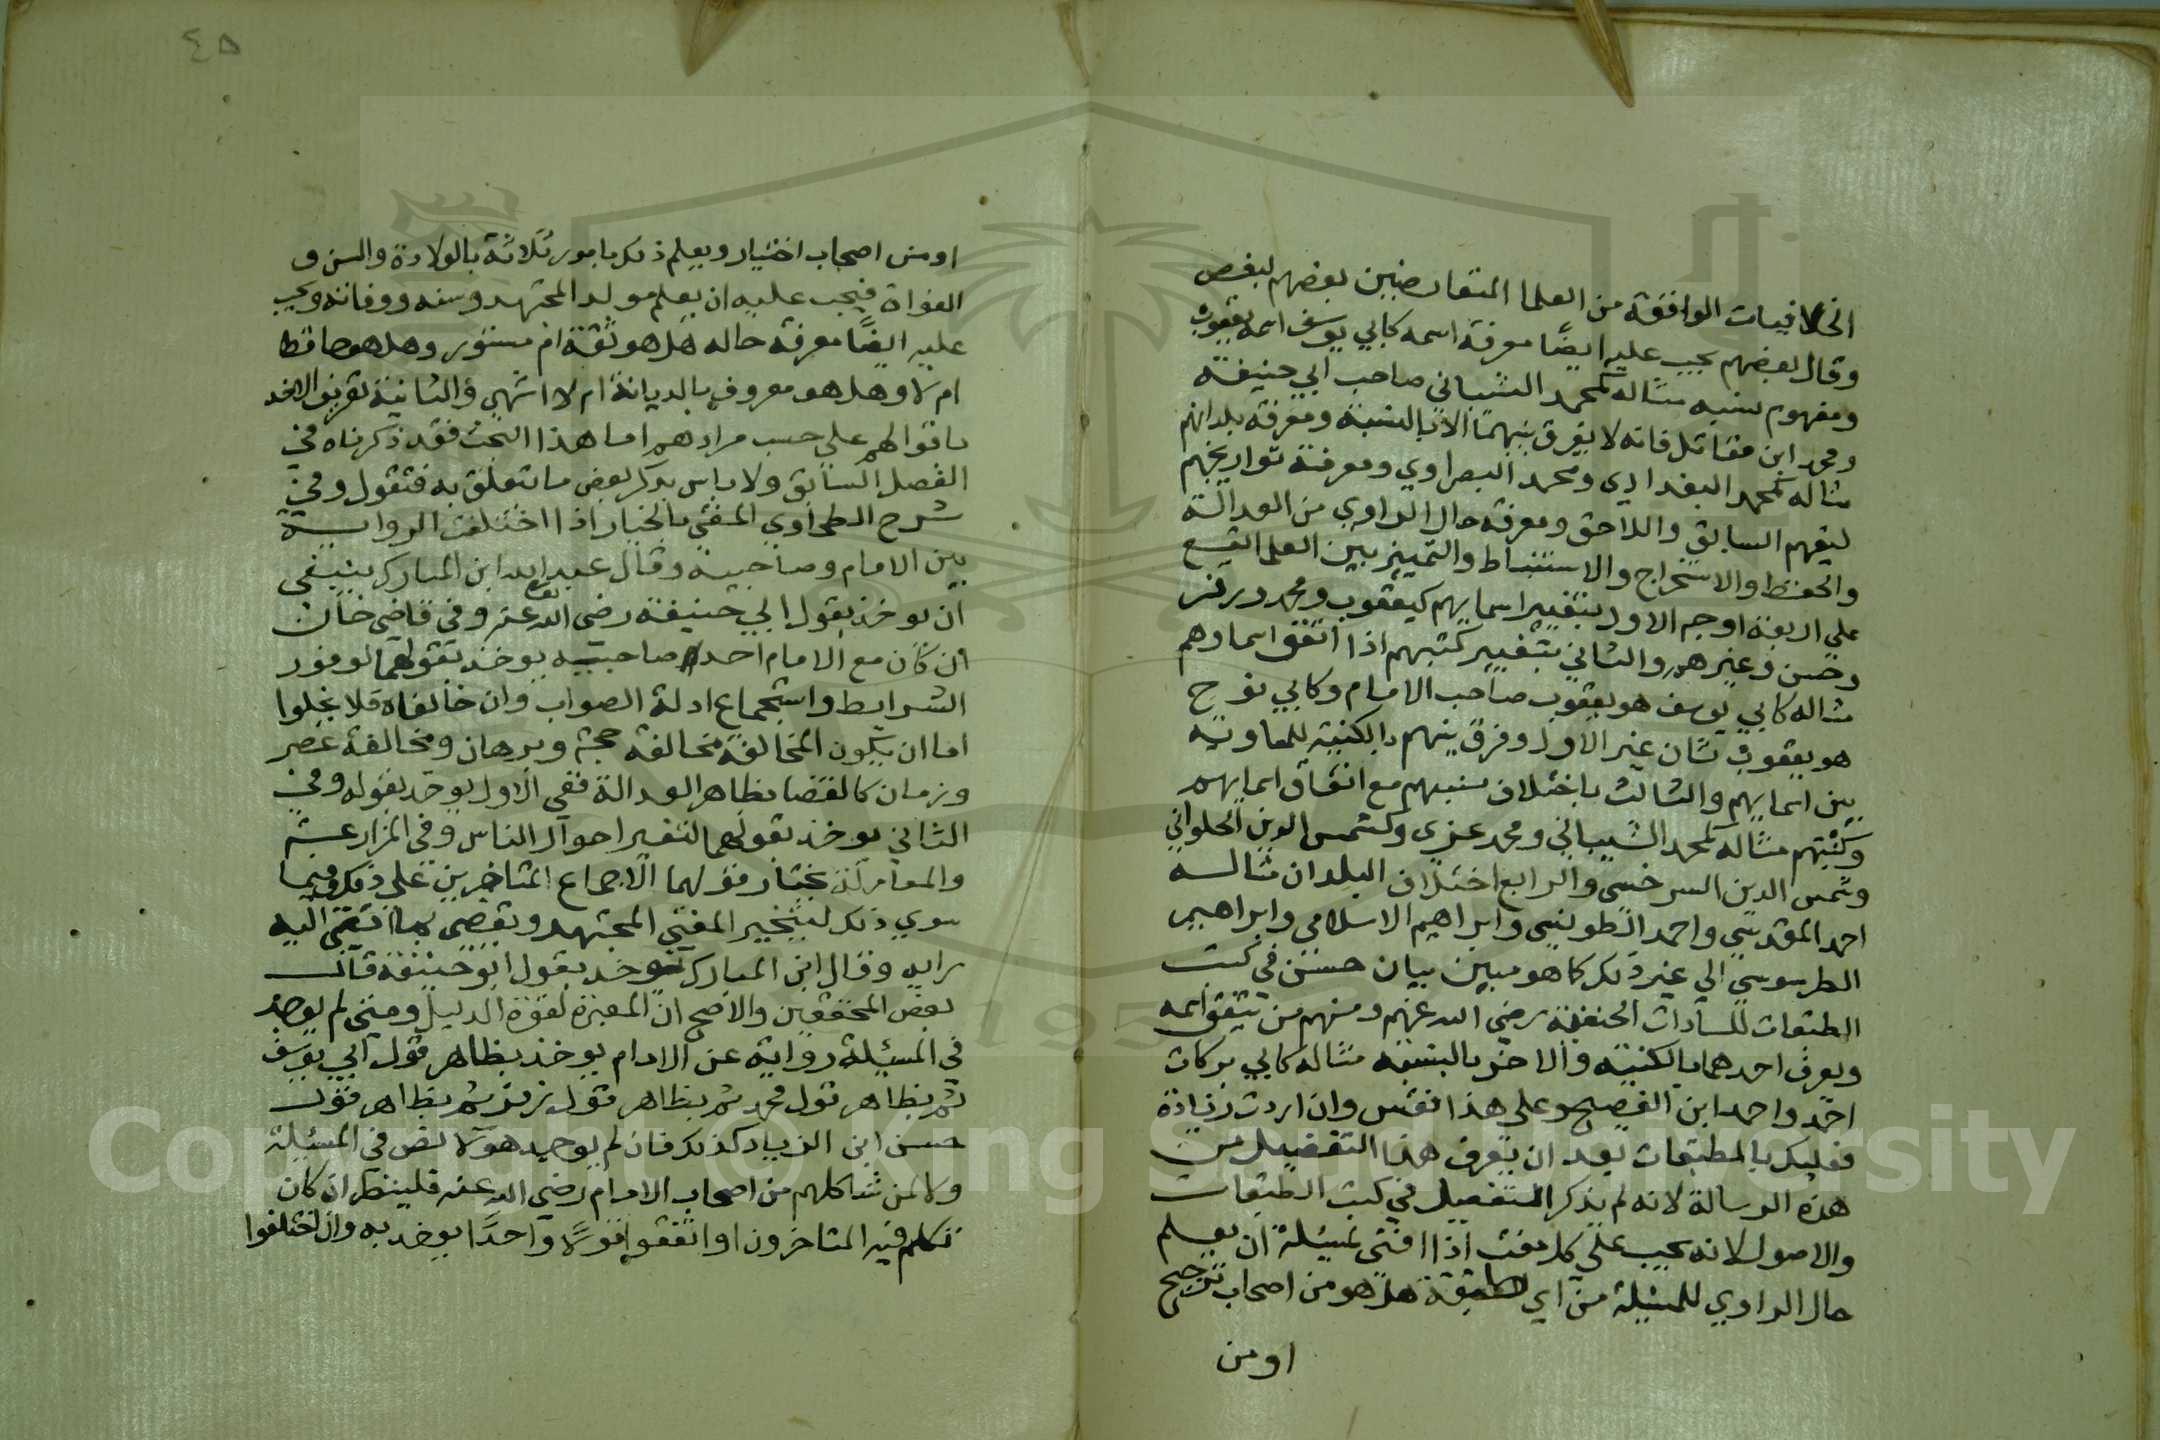 الخلافيات الوافقة من العلما المتعارضين بعضهم لبعض
وقال بعضهم يجب عليه ايضًا معرفة اسمه كابي يوسف اسمه يعقوب
ومفهوم نسبه مثاله كمحمد الشيباني صاحب ابي حنيفة
ومحمد ابن مقاتل فانه لا يفرق بينهما الا بالنسبة ومعرفة بلدانهم
مثاله كمحمد البغدادي ومحمد البصراوي ومعرفة تواريخهم
ليفهم السابق واللاحق ومعرفة حال الراوي من العدالة
والحفظ والاستخراج والاستنباط والتمييز بين العلما التبع
علي اربعة اوجه الاول بتغيير اسمايهم كيعقوب ومحمد وزفر
وحسن وغيرهم والثاني بتغيير كنيتهم اذا اتفق اسماوهم
مثاله كابي يوسف هو يعقوب صاحب الامام وكابي نوح
هو يعقوب ثان غير الاول وفرق بينهم بالكنية للمعاونة
بين اسمايهم والثالث باختلاف نسبهم مع اتفاق اسمايهم
وكنيتهم مثاله كمحمد الشيباني ومحمد غزي وكشمس الدين الحلواني
وشمس الدين السرخسي والرابع اختلاف البلدان مثاله
احمد المقدسي واحمد الطونسي وابراهيم الاسلامي وابراهيم
الطرسوسي الي غير ذلك كما هو مبين بيان حسن في كتب
الطبقات للسادات الحنفية رضي الله عنهم ومنهم من يتفق اسمه
ويعرف احدهما بالكنية والاخر بالنسبة مثاله كابي بركات
احمد واحمد ابن الفصيح وعلى هذا فقس وان اردت زيادة
فعليك بالمطبقات بعد ان تعرف هذا التفصيل من
هذه الرسالة لانه لم يذكر التفصيل في كتب الطبقات
والاصول لانه يجب علي كل مفت اذا افتى بمسئلة ان يعلم
حال الراوي للمسئلة من اي طبقة هل هو من اصحاب ترجيح
او من
٤٥
او من اصحاب اختيار ويعلم ذلك بامور ثلاثة بالولادة والسن و
الفواة فيجب عليه ان يعلم مولد المجتهد وسنه ووفاته ويجب
عليه ايضًا معرفة حاله هل هو ثقة ام مستور وهل هو حافظ
ام لا وهل هو معروف بالديانة ام لا انتهى والثانية تعريف الاخذ
باقوالهم علي حسب مرادهم اما هذا البحث فقد ذكرناه في
الفصل السابق ولا باس بذكر بعض ما يتعلق به فنقول وفي
شرح الطحاوي المفتي بالخيار اذا اختلفت الرواية
بين الامام وصاحبيه وقال عبد الله ابن المبارك ينبغي
ان يوخذ بقول ابي حنيفة رضى الله عنه وفي قاضي خان
ان كان مع الامام احد صاحبيه يوخذ بقولهما لوفور
الشرايط واستجماع ادلة الصواب وان خالفاه فلا يخلوا
اما ان يكون المخالفة مخالفة حجة وبرهان ومخالفة عصر
وزمان كالقضا بظاهر العدالة ففي الاول يوخذ بقوله وفي
الثاني يوخذ بقولهما لتغير احوال الناس وفي المزارعة
والمعاملة يختار قولهما لاجماع المتاخرين على ذلك وفيما
سوي ذلك ليتخير المفتي المجتهد ويقضي بما افضى اليه
رايه وقال ابن المبارك يوخذ بقول ابو حنيفة قال
بعض المحققين والاصح ان العبرة لقوة الدليل ومتى لم يوجد
في المسئلة رواية عن الامام يوخذ بظاهر قول ابي يوسف
ثم بظاهر قول محمد ثم بظاهر قول زفر ثم بظاهر قول
حسن ابن الزياد كذلك فان لم يوجد هولا نص في المسئلة
ولا لمن شاكلهم من اصحاب الامام رضي الله عنه فلينظر ان كان
تكلم فيه المتاخرون او اتفقوا قولًا واحدًا يوخذ به وان اختلفوا
Copyright © King Saud University